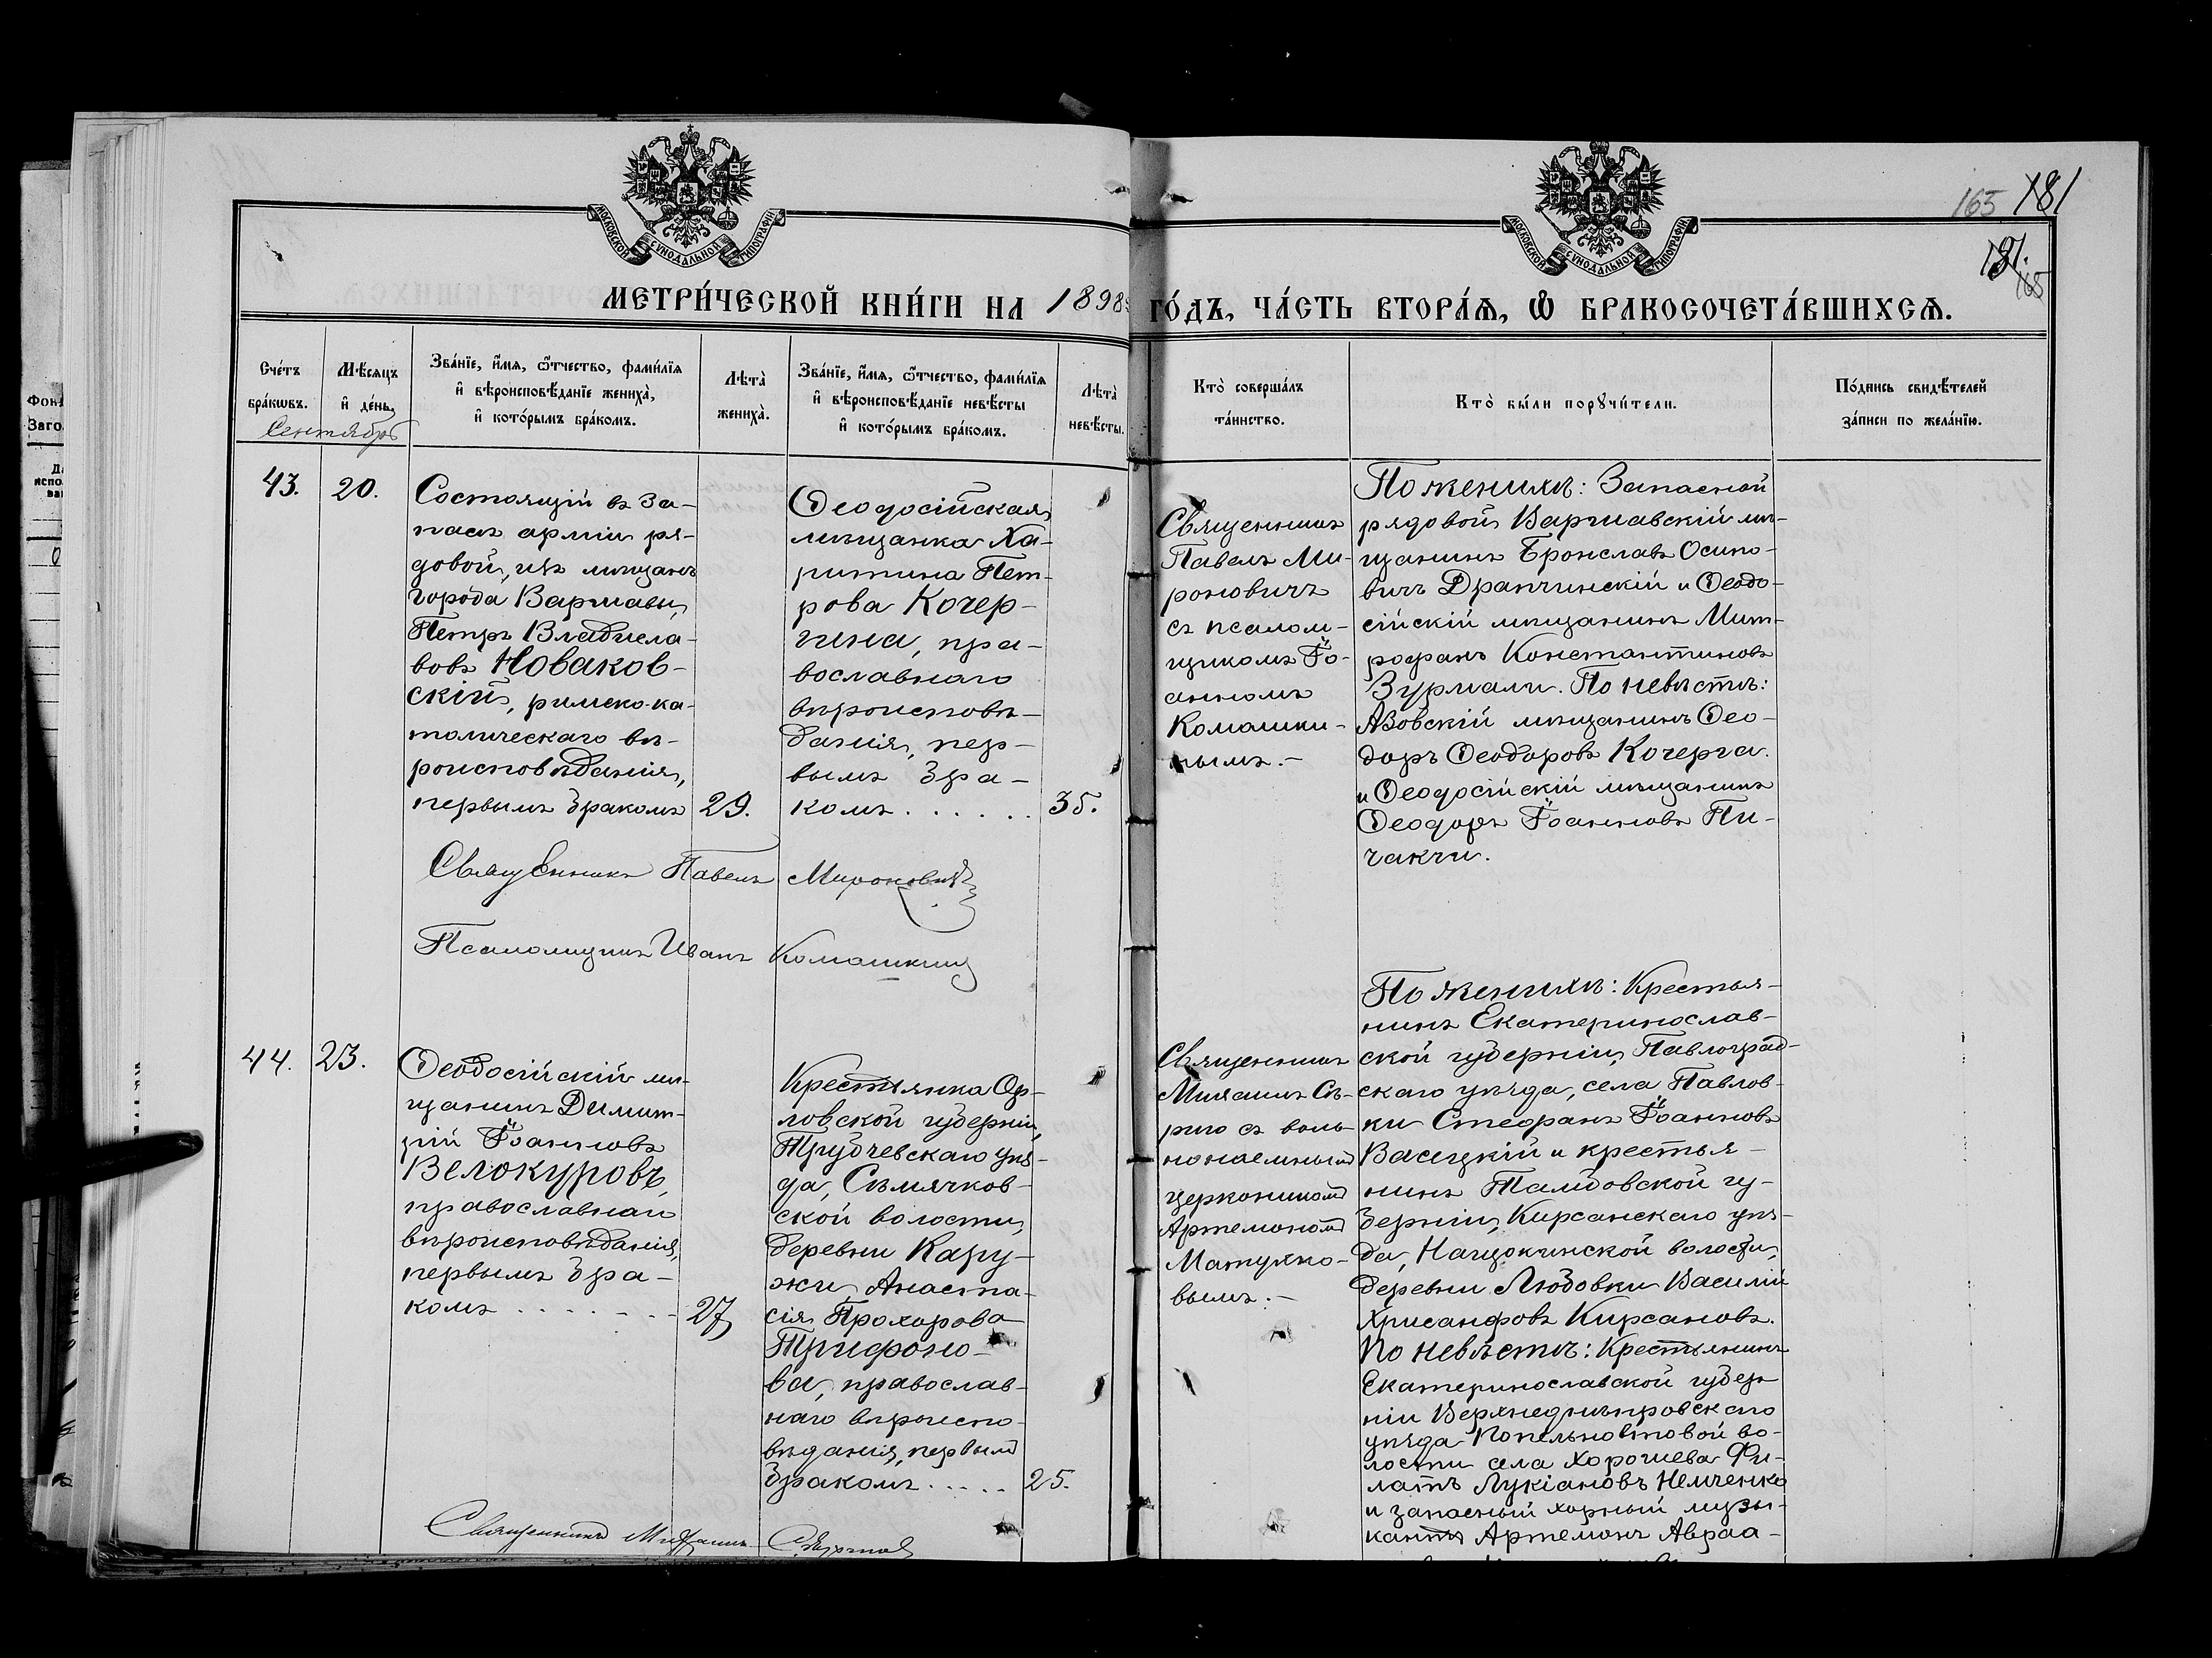 165 181
181.
165
МОСКОВСКОЙ СѴНОДАЛЬНОЙ ТИПОГРАФІИ.
МОСКОВСКОЙ СѴНОДАЛЬНОЙ ТИПОГРАФІИ.
МЕТРИ́ЧЕСКОЙ КНИ́ГИ НА 1898 ГО́ДЪ, ЧА́СТЬ ВТОРА́Ѧ, Ѡ҆ БРАКОСОЧЕТА́ВШИХСѦ.
Сче́тъ
бра́кѡвъ.
Мѣ́сяцъ
и҆ де́нь.
Сентябрь
Зва́нїе, и҆́мѧ, ѻ҆́тчество, фами́лїѧ
и҆ вѣроисповѣ́данїе жениха̀,
и҆ кото́рымъ бра́комъ.
Лѣта̀
жениха̀.
Зва́нїе, и҆́мѧ, ѻ҆́тчество, фами́лїѧ
и҆ вѣроисповѣ́данїе невѣ́сты
и҆ кото́рымъ бра́комъ.
Лѣта̀
невѣ́сты.
Кто̀ соверша́лъ
та́инство.
Кто̀ бы́ли порꙋчи́тели.
По́дпись свидѣ́телей
за́писи по жела́нїю.
43.
20.
Состоящій въ за-
пасѣ арміи ря-
довой, изъ мѣщанъ
города Варшавы,
Петръ Владисла-
вовъ Новаков-
скій, римско-ка-
толическаго вѣ-
роисповѣданія,
первымъ бракомъ
29.
Ѳеодосійская
мѣщанка Ха-
ритина Пет-
рова Кочер-
гина, пра-
вославнаго
вѣроисповѣ-
данія, пер-
вымъ бра-
комъ . . . . . .
35.
Священникъ
Павелъ Ми-
роновичъ
съ псалом-
щикомъ Іо-
анномъ
Комашки-
нымъ.-
По женихѣ: Запасной
рядовой Варшавскій мѣ-
щанинъ Брониславъ Осипо-
вичъ Драпчинскій и Ѳеодо-
сійскій мѣщанинъ Мит-
рофанъ Константиновъ
Зурмали. По невѣстѣ:
Азовскій мѣщанинъ Ѳео-
доръ Ѳеодоровъ Кочерга.
и Ѳеодосійскій мѣщанинъ
Ѳеодоръ Іоанновъ Пи-
чакчи.
Священникъ Павелъ Мироновичъ
Псаломщикъ Иванъ Комашкинъ
44.
23.
Ѳеодосійскій мѣ-
щанинъ Димит-
рій Іоанновъ
Белокуровъ,
православнаго
вѣроисповѣданія,
первымъ бра-
комъ . . . . . . .
27
Крестьянка Ор-
ловской губерніи,
Трубчевскаго уѣз-
да, Сѣмячков-
ской волости,
деревни Кару-
жи, Анаста-
сія Прохорова
Трифоно-
ва, православ-
наго вѣроиспо-
вѣданія, первымъ
бракомъ . . . . .
25.
Священникъ
Михаилъ Сѣ-
рио съ воль-
нонаемнымъ
церковникомъ
Артемономъ
Матуяко-
вымъ.-
По женихѣ: Крестья-
нинъ Екатеринослав-
ской губерніи, Павлоград-
скаго уѣзда, села Павлов-
ки Стефанъ Іоанновъ
Васецкій и крестья-
нинъ Тамбовской гу-
берніи, Кирсанскаго уѣз-
да, Нащокинской волости,
деревни Любовки Василій
Хрисанфовъ Кирсановъ.
По невѣстѣ: Крестьянинъ
Екатеринославской губер-
ніи Верхнеднѣпровскаго
уѣзда Попельнастовой во-
лости села Хорошева Фи-
латъ Лукіановъ Немченко
и запасный хорный музы-
кантъ Артемонъ Авраа-
Священникъ Михаилъ